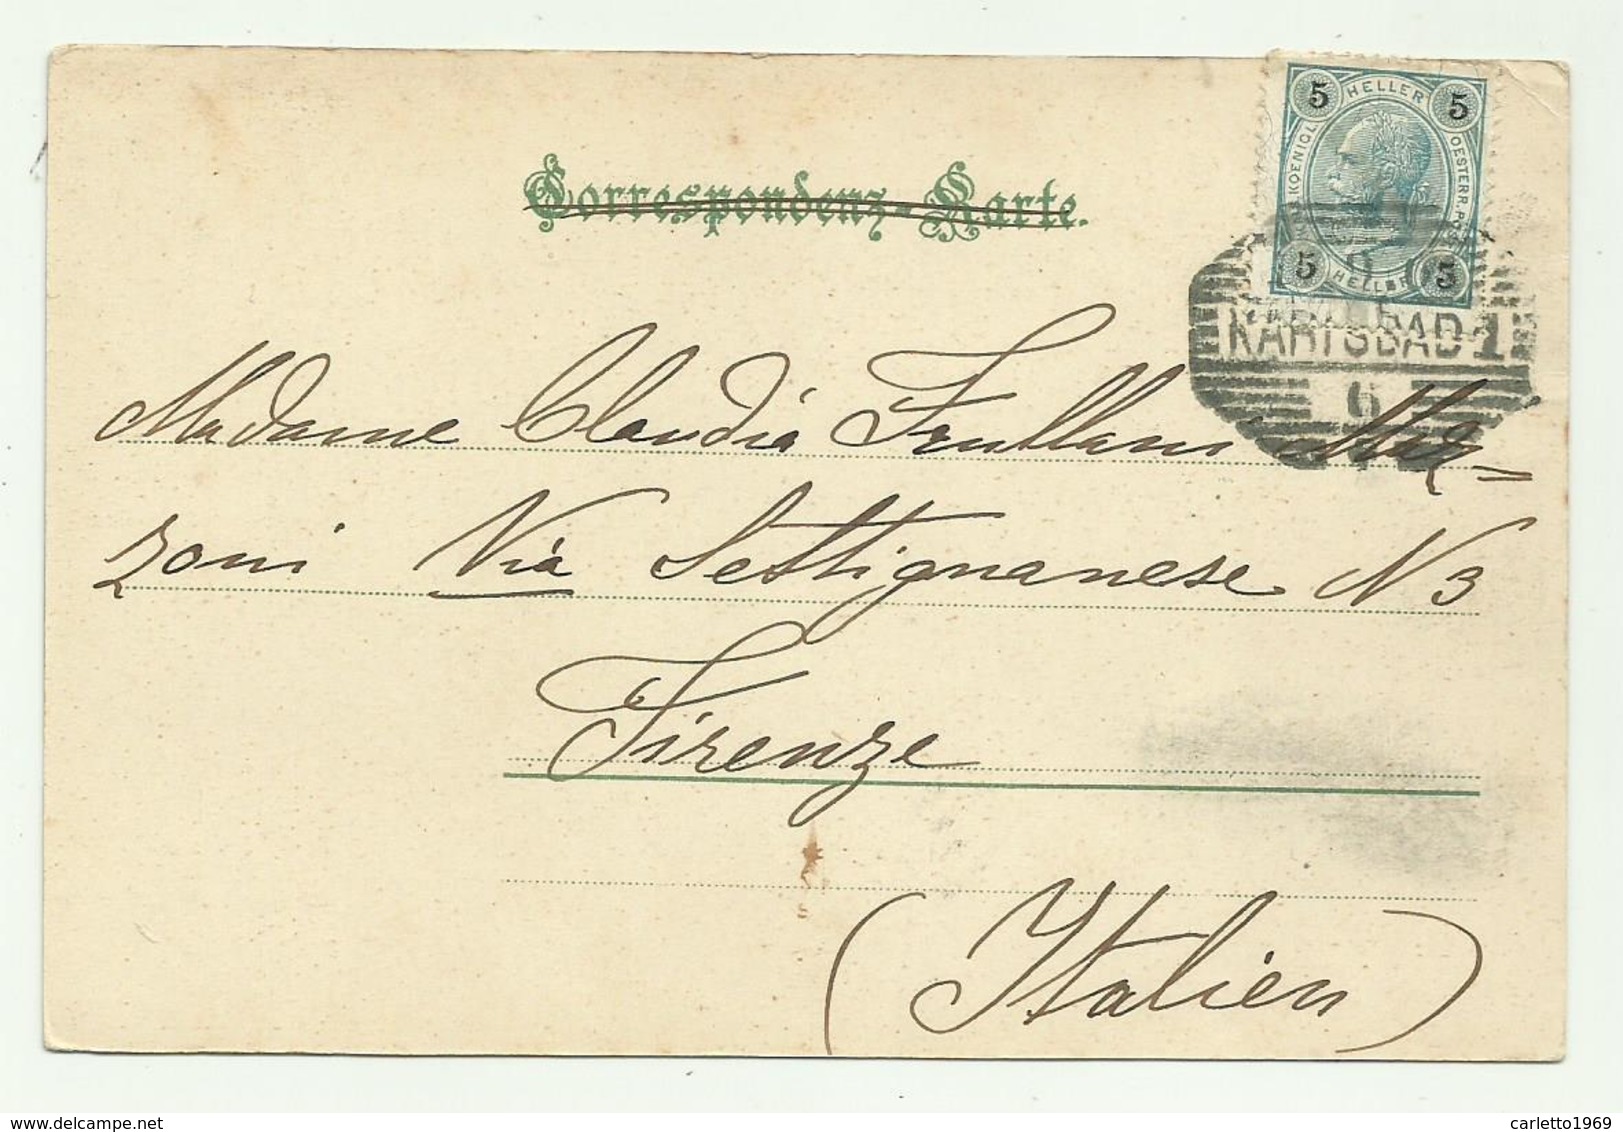 Correspondenz-Karte.
5 HELLER 5
KOENIGL. OESTERR. POST
5 HELLER 5
KARLSBAD 1
6
Madame Claudia Frullani Mar=
zoni Via Settignanese N 3
Firenze
(Italien)
delcampe.net
carletto1969